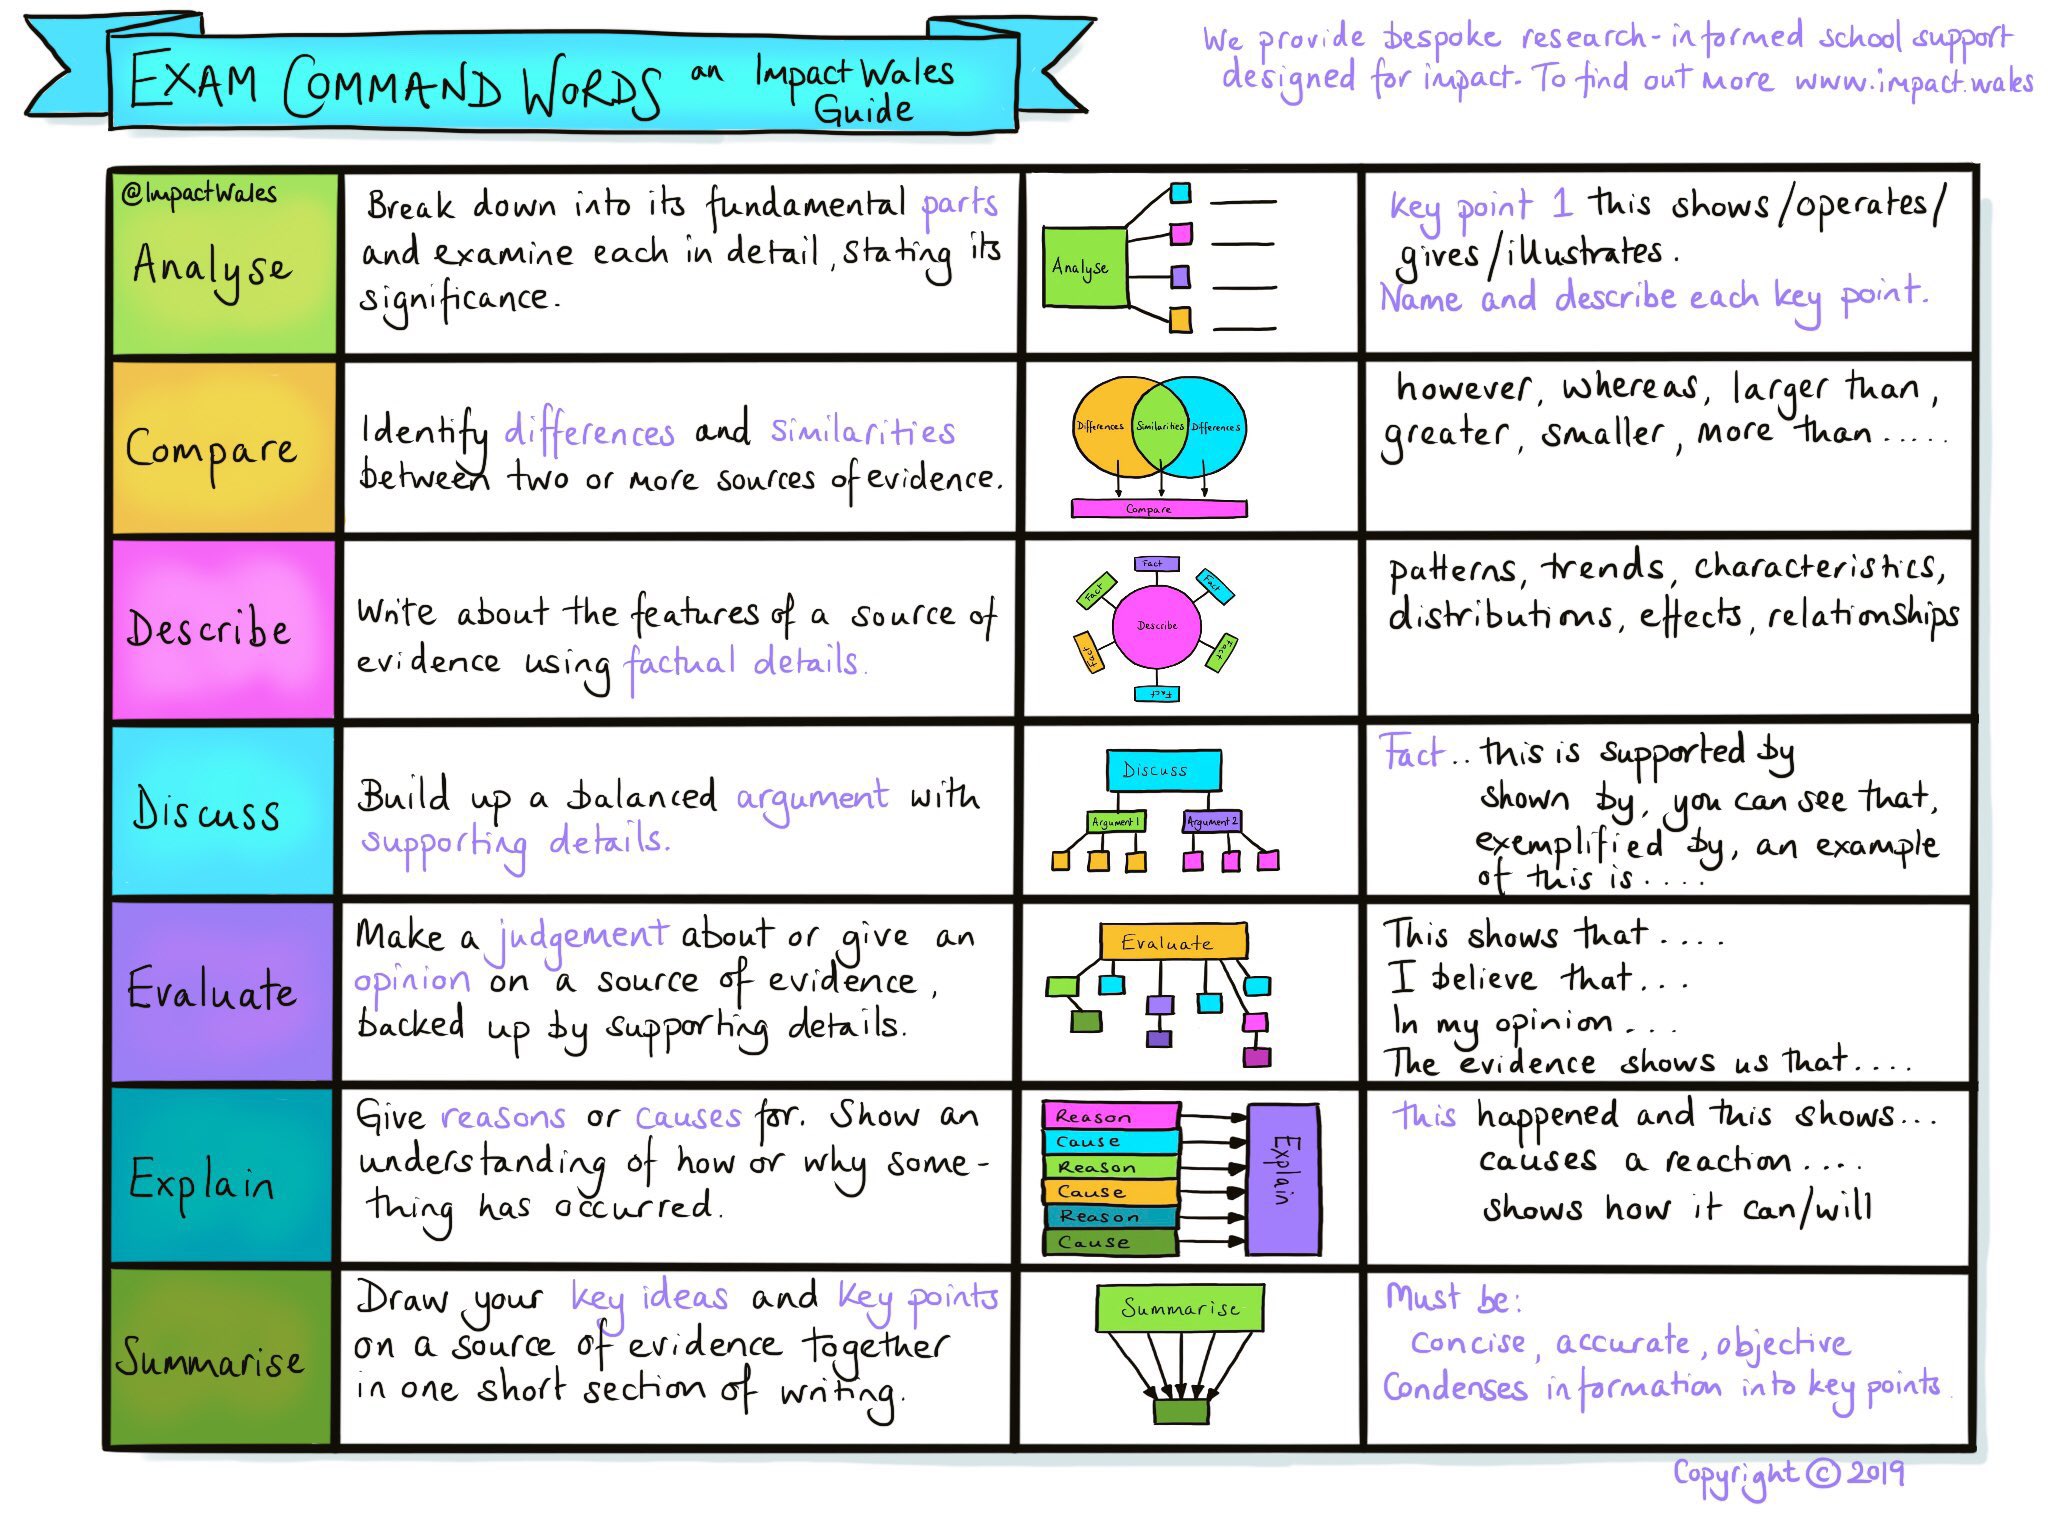 EXAM COMMAND WORDS an Impact Wales
Guide
We provide bespoke research-informed school support
designed for impact. To find out more www.impact.wales
@ImpactWales
Analyse
Break down into its fundamental parts
and examine each in detail, stating its
significance.
Analyse
key point 1 this shows/operates/
gives/illustrates.
Name and describe each key point.
Compare
Identify differences and similarities
between two or more sources of evidence.
Differences Similarities Differences
Compare
however, whereas, larger than,
greater, smaller, more than.....
Describe
Write about the features of a source of
evidence using factual details.
Fact
Fact
Fact
Describe
Fact
Fact
Fact
patterns, trends, characteristics,
distributions, effects, relationships
Discuss
Build up a balanced argument with
supporting details.
Discuss
Argument 1 Argument 2
Fact.. this is supported by
shown by, you can see that,
exemplified by, an example
of this is....
Evaluate
Make a judgement about or give an
opinion on a source of evidence,
backed up by supporting details.
Evaluate
This shows that....
I believe that...
In my opinion...
The evidence shows us that....
Explain
Give reasons or causes for. Show an
understanding of how or why some-
thing has occurred.
Reason
Cause
Reason
Cause
Reason
Cause
Explain
this happened and this shows...
causes a reaction....
shows how it can/will
Summarise
Draw your key ideas and key points
on a source of evidence together
in one short section of writing.
Summarise
Must be:
concise, accurate, objective
Condenses information into key points.
Copyright © 2019